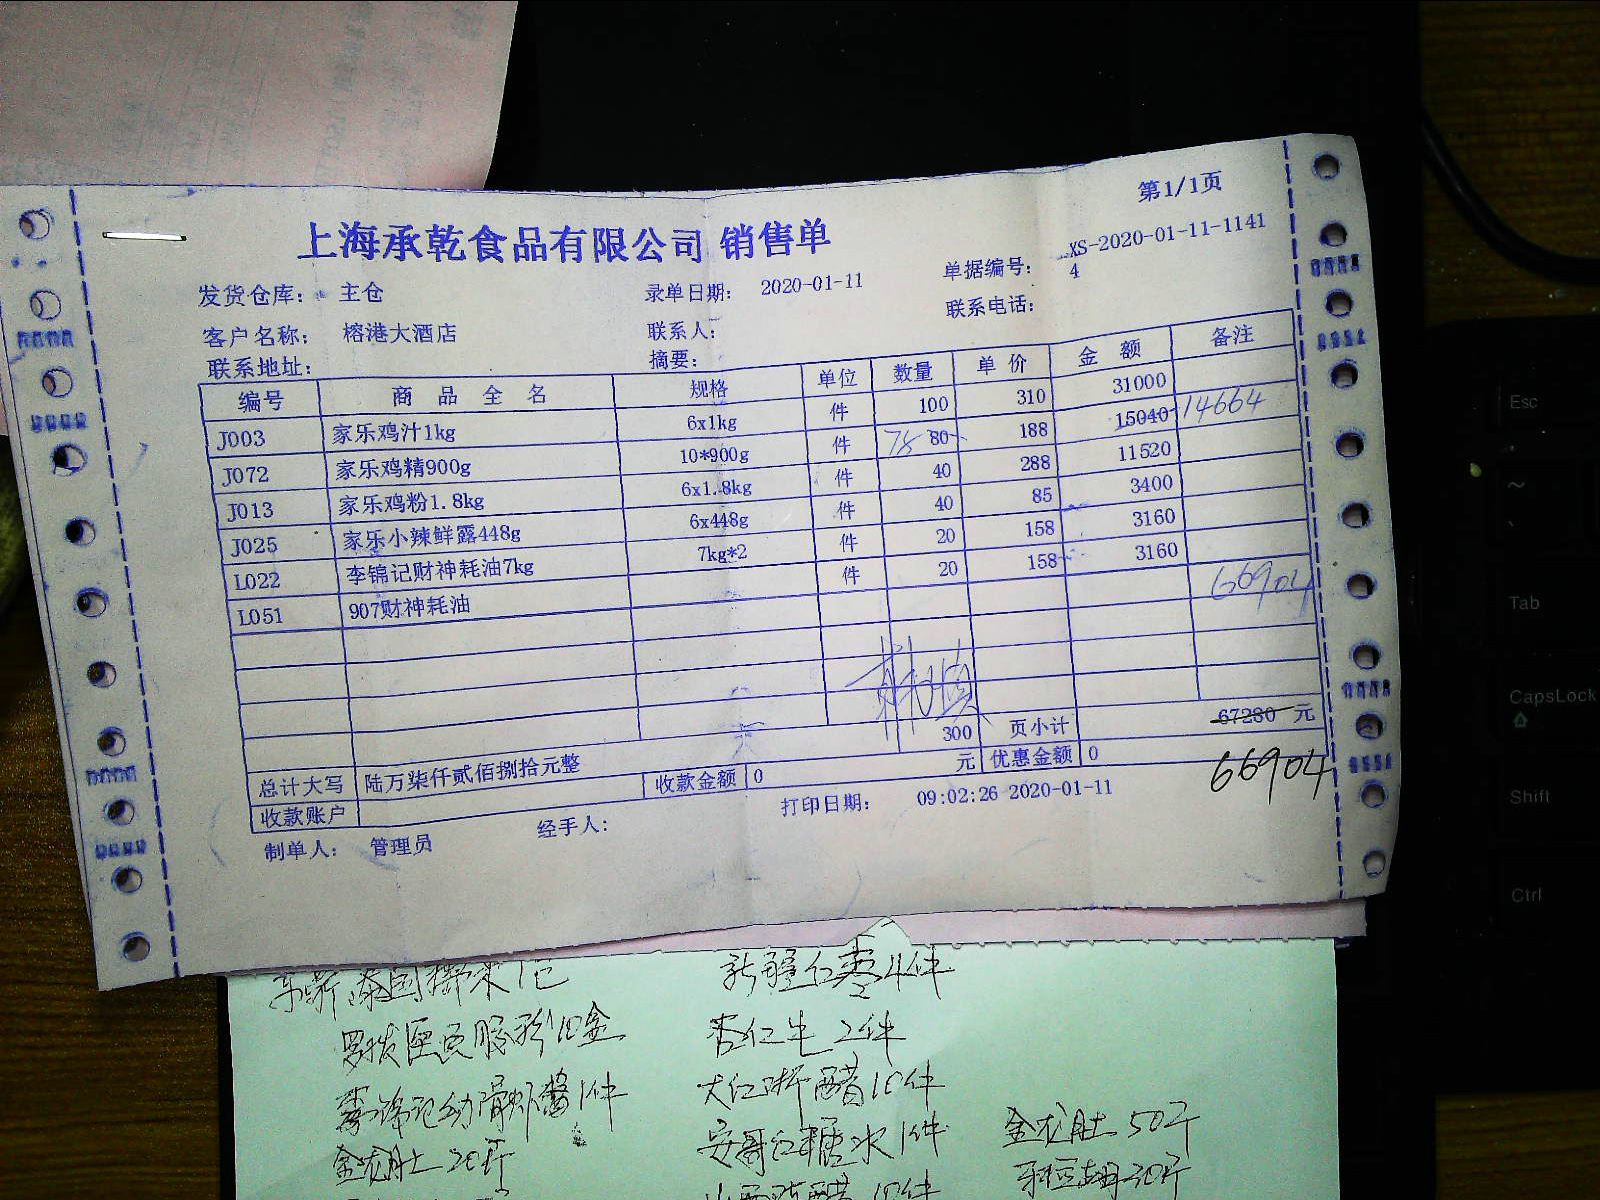 第1/1页
上海承乾食品有限公司 销售单
发货仓库: 主仓 录单日期: 2020-01-11 单据编号: XS-2020-01-11-1141
4
客户名称: 榕港大酒店 联系人: 联系电话:
联系地址: 摘要:
编号 商品全名 规格 单位 数量 单价 金额 备注
J003 家乐鸡汁1kg 6x1kg 件 100 310 31000
J072 家乐鸡精900g 10*900g 件 78 80 188 15040 14664
J013 家乐鸡粉1.8kg 6x1.8kg 件 40 288 11520
J025 家乐小辣鲜露448g 6x448g 件 40 85 3400
L022 李锦记财神耗油7kg 7kg*2 件 20 158 3160
L051 907财神耗油 件 20 158 3160
66904
300 页小计 67280 元
总计大写 陆万柒仟贰佰捌拾元整 收款金额 0 元 优惠金额 0
66904
收款账户
制单人: 管理员 经手人: 打印日期: 09:02:26 2020-01-11
新疆红枣4件
杏仁 2件
大红浙醋10件
安哥红糖水1件
金龙肚20斤
金龙肚50斤
Esc
Tab
CapsLock
Shift
Ctrl